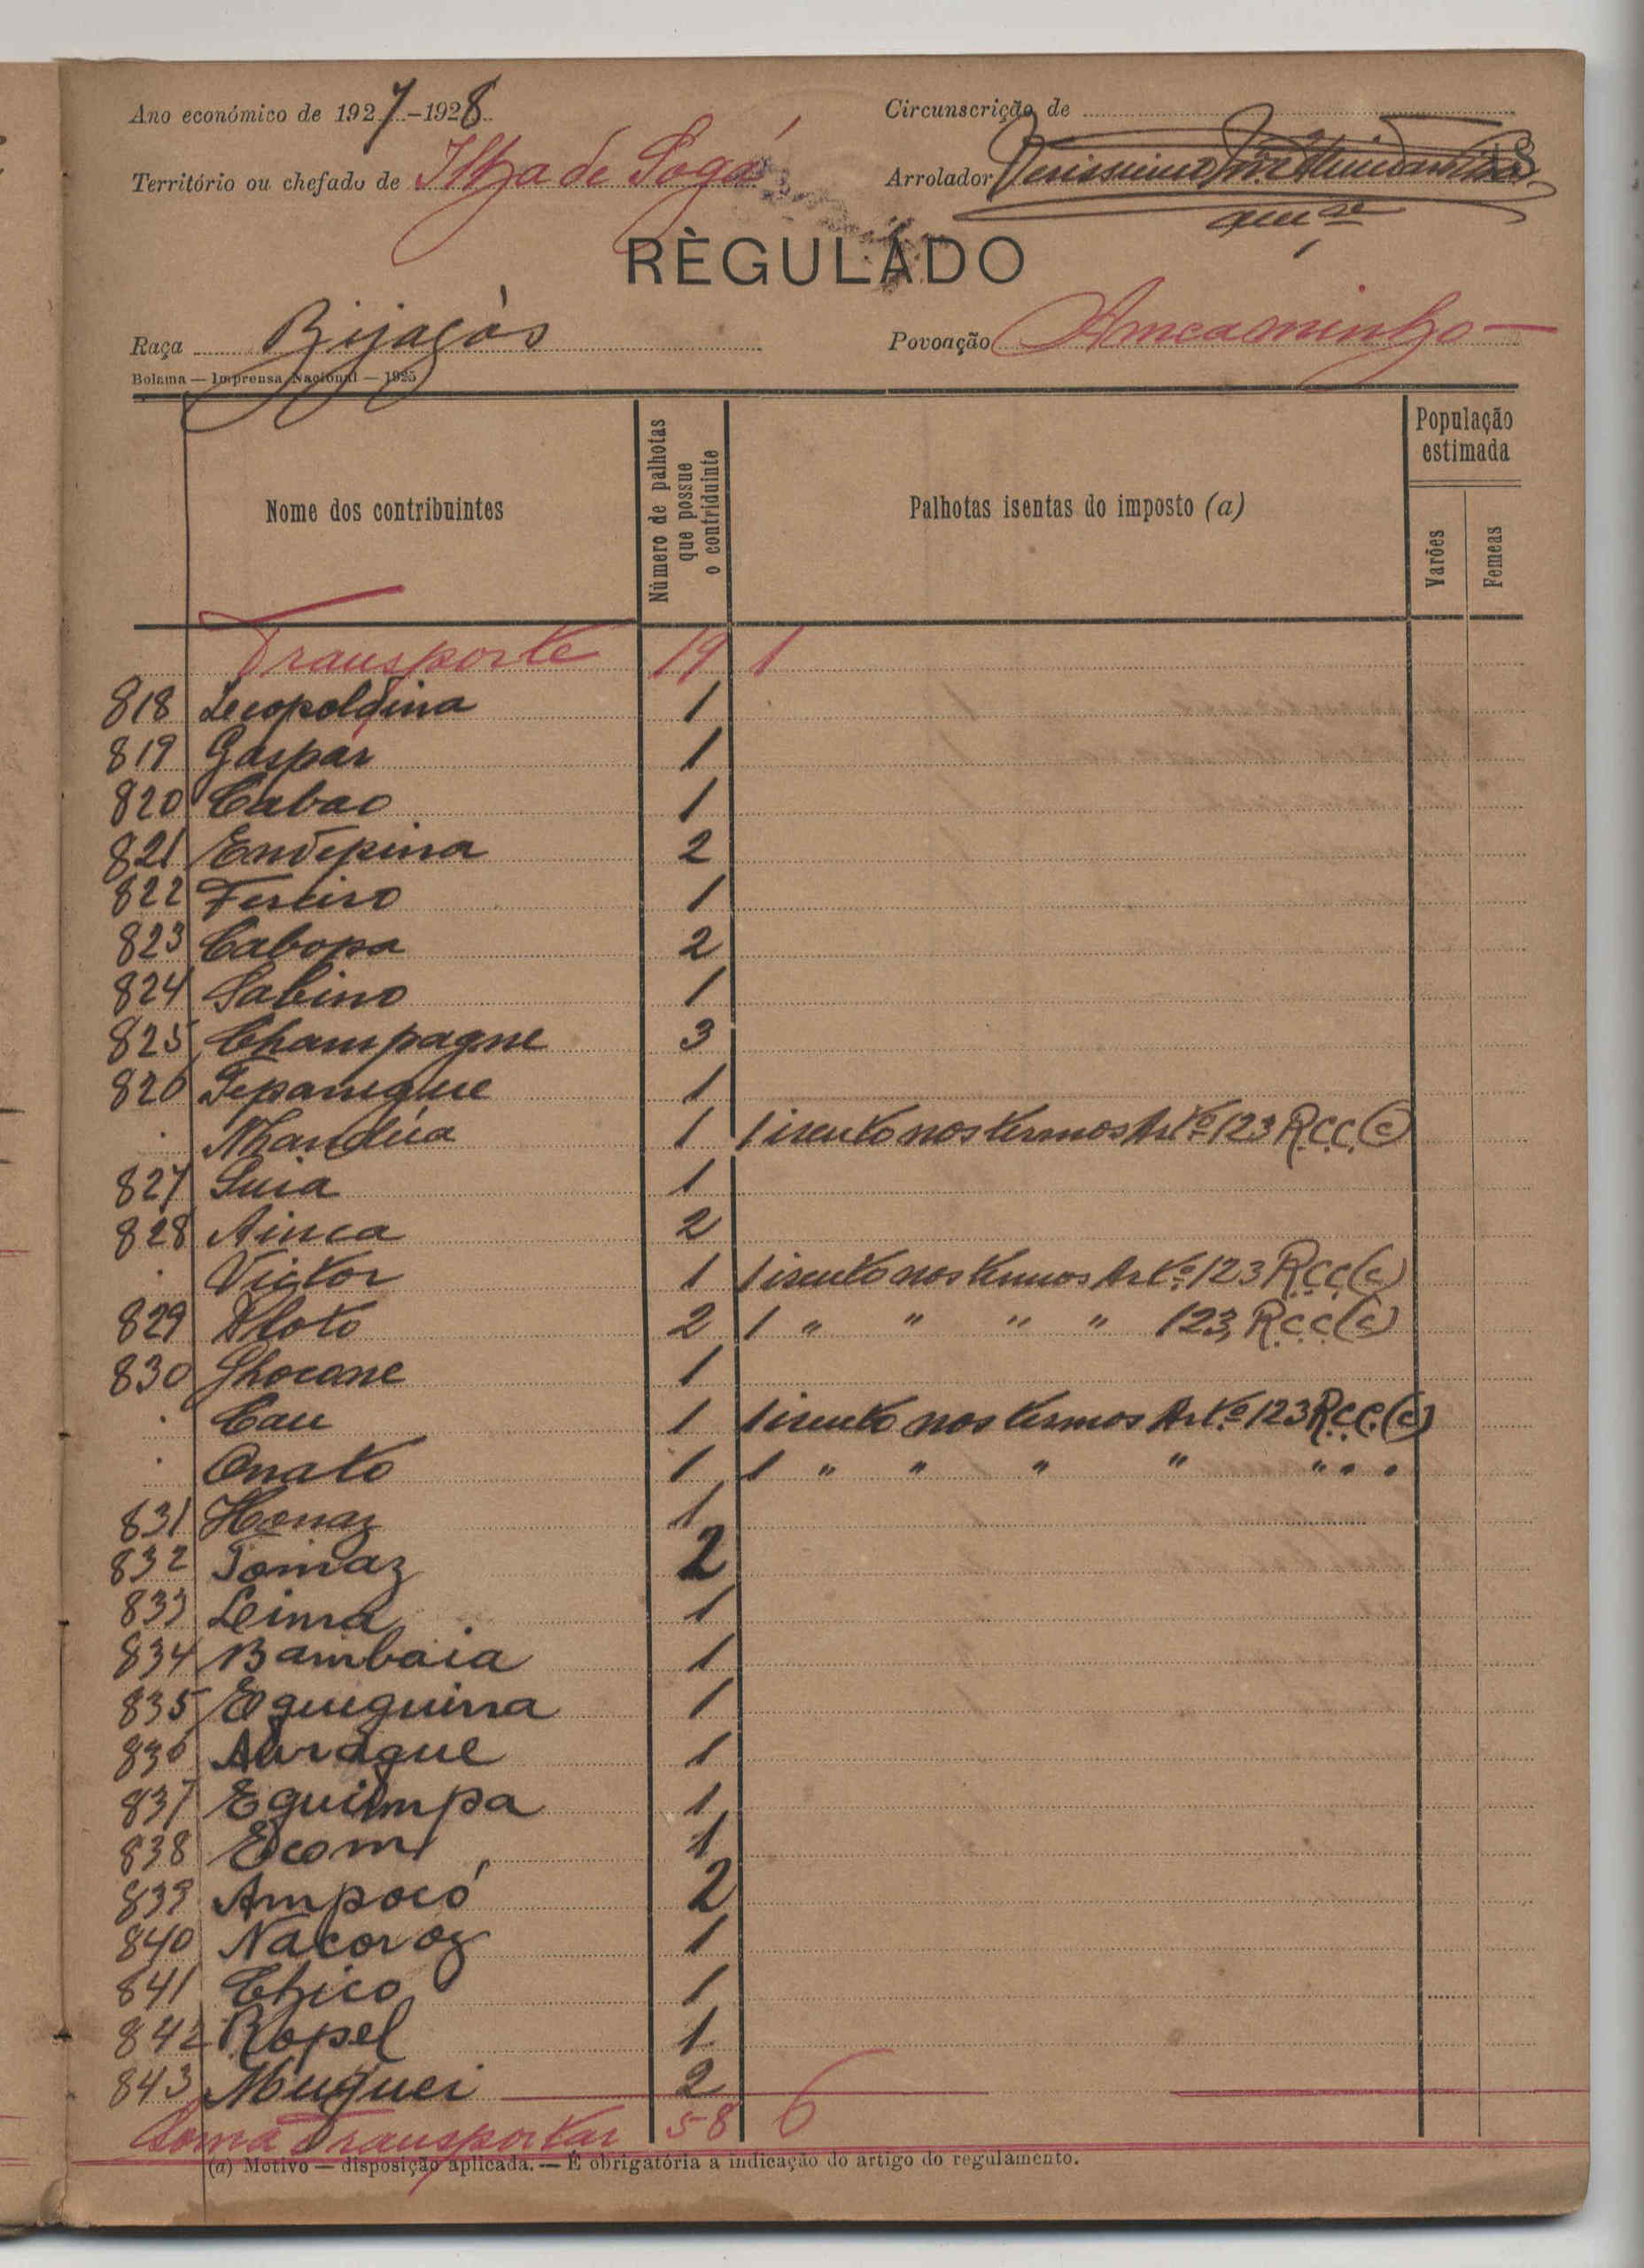 Ano económico de 1927-1928
Circunscrição de
Território ou chefado de Ilha de Sogá
Arrolador
18
RÈGULADO
Raça Bijagós
Povoação Ancaminho
Bolama — Imprensa Nacional — 1925
Nome dos contribuintes
Número de palhotas que possue o contriduinte
Palhotas isentas do imposto (a)
População estimada
Varões
Femeas
Transporte 19 1
818 Leopoldina 1
819 Gaspar 1
820 Cabao 1
821 Endepina 2
822 1
823 Cabopa 2
824 Sabino 1
825 Champagne 3
826 Tepanique 1
Nhandúa 1 1 isento nos termos Artº 123 R.C.C. (c)
827 Suia 1
828 Ainca 2
Victor 1 1 isento nos termos Artº 123 R.C.C. (c)
829 Aloto 2 1 " " " " 123, R.C.C. (c)
830 Ghocane 1
Cau 1 1 isento nos termos Artº 123 R.C.C. (c)
Onato 1 1 " " " " " " "
831 Honaz 1
832 Tomaz 2
833 Leima 1
834 Bambaia 1
835 Eguiguina 1
836 Auragué 1
837 Eguimpa 1
838 Ecom 1
839 Ampocó 2
840 Nacoroz 1
841 Chico 1
842 Ropel 1
843 Muguei 2
Soma Transportar 58 6
(a) Motivo — disposição aplicada. — É obrigatória a indicação do artigo do regulamento.